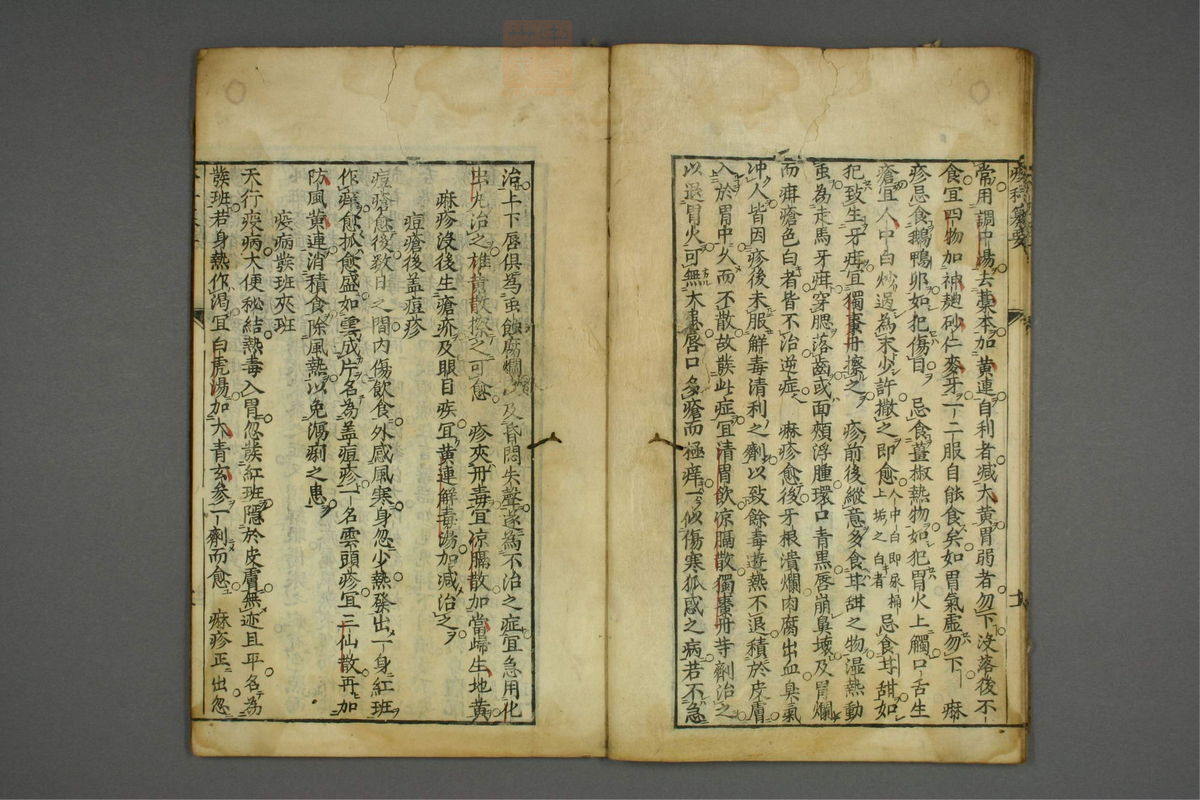 痘科纂要
常用調中湯去藁本加黄連自利者减大黄胃弱者勿下没落後不
食宜四物加神麹砂仁麥牙一二服自能食矣如胃氣虚勿下 痳
疹忌食鵝鴨卵如犯傷目 忌食薑椒熱物如犯胃火上觸口舌生
瘡宜人中白炒過為末少許撒之即愈 人中白即尿桶上垢之白者 忌食甘甜如
犯致生牙疳宜獨棗丹擦之 疹前後縱意多食甘甜之物湿熱動
虫為走馬牙疳穿腮落齒或面頰浮腫環口青黒唇崩鼻壊及胃爛
而疳瘡色白者皆不治逆症 痳疹愈後牙根潰爛肉腐出血臭氣
冲人皆因疹後未服解毒清利之劑以致餘毒遊熱不退積於皮膚
入於胃中久而不散故發此症宜清胃飲凉膈散獨棗丹等劑治之
以退胃火可無大患唇口多瘡而極痒一似傷寒狐惑之病若不急
治上下唇俱為虫蝕腐爛以及昏悶失聲遂為不治之症宜急用化
虫丸治之雄黄散擦之可愈 疹夾丹毒宜凉膈散加當歸生地黄
痳疹没後生瘡疥及眼目疾宜黄連解毒湯加减治之
痘瘡後盖痘疹
痘瘡愈後数日之間内傷飲食外感風寒身忽少熱發出一身紅班
作痒愈抓愈盛如雲成片名為盖痘疹一名雲頭疹宜三仙散再加
防風黄連消積食除風熱以免瀉痢之患
疫病發班夾班
天行疫病大便秘結熱毒入胃忽發紅班隱於皮膚無迹且平名為
發班若身熱作渇宜白虎湯加大青玄參一劑而愈 痳疹正出忽